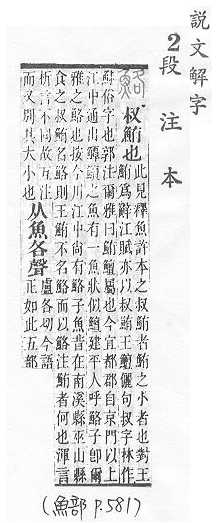 說文解字
2段注本
鮥 叔鮪也
此見釋魚許本之叔鮪者鮪之小者也對王
鮪爲辭江賦亦以叔鮪王鱣儷句叔字林作
鮛俗字也郭注爾雅曰鮪鱣屬也今宜都郡自京門以上
江中通出鱏鱣之魚有一魚狀似鱣建平人呼鮥子卽爾
雅之鮥也按今川江中尚有鮥子魚昔在南溪縣巫山縣
食之叔鮪名鮥則王鮪不名鮥而以鮥注鮪者何也渾言
析言不同故互注
而又別其大小也
从魚各聲
盧各切今語
正如此五部
(魚部 P.581)